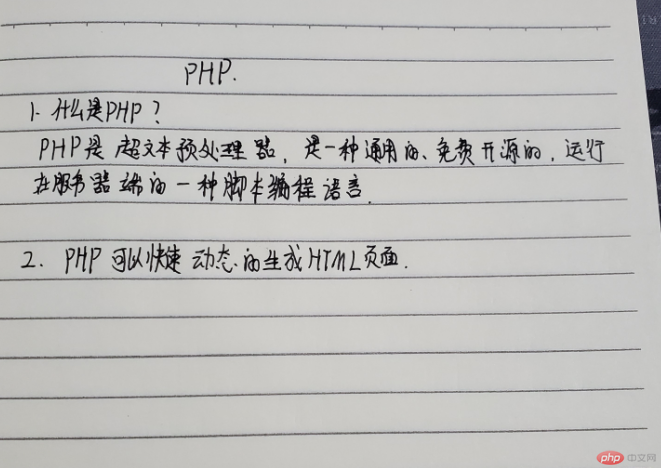 PHP.
1. 什么是PHP？
PHP是超文本预处理器，是一种通用的、免费开源的，运行
在服务器端的一种脚本编程语言.
2. PHP 可以快速 动态的生成HTML页面.
php 中文网